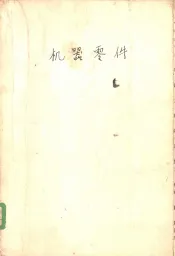 机器零件